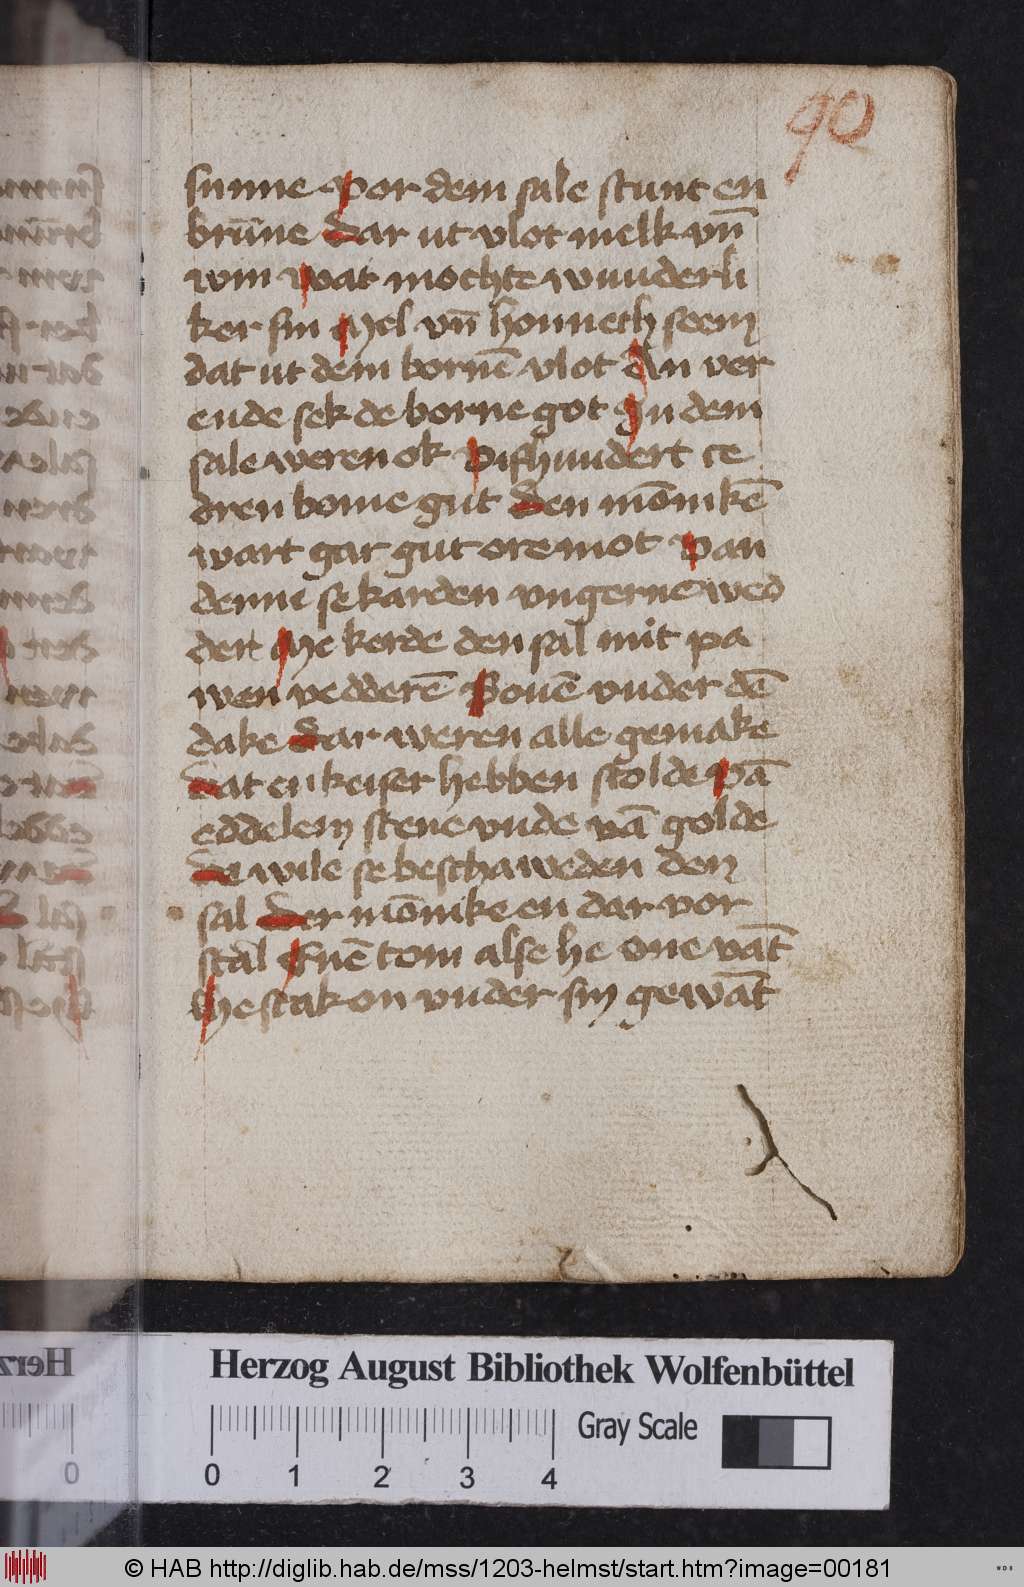 90
sunne Vor dem sale stunt en
brūne Dar ut vlot melk vn̄
win Wat mochte wunderli
ker sin Mel vn̄ honnech seem
dat ut dem bornē vlot An ver
ende sek de borne got In dem
sale weren ok Vifhundert ce
dren bome gut Den mōnikē
wart gar gut ore mot Van
denne se karden vngerne wed
der Me kerde den sal mit pa
wen vedderē Bouē vnder dē
dake Dar weren alle gemake
Dat en keiser hebben scolde Vā
eddelem stene vnde vā golde
De wile se beschaweden den
sal Der mōnike en dar vor
stal Enē tom alse he one vāt
He stak on vnder sin gewāt
Herzog August Bibliothek Wolfenbüttel
0 1 2 3 4 Gray Scale
© HAB http://diglib.hab.de/mss/1203-helmst/start.htm?image=00181